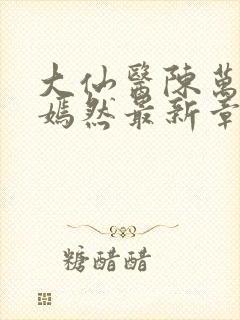 大仙醫陳萬
嫣然最新章
糖醋醋